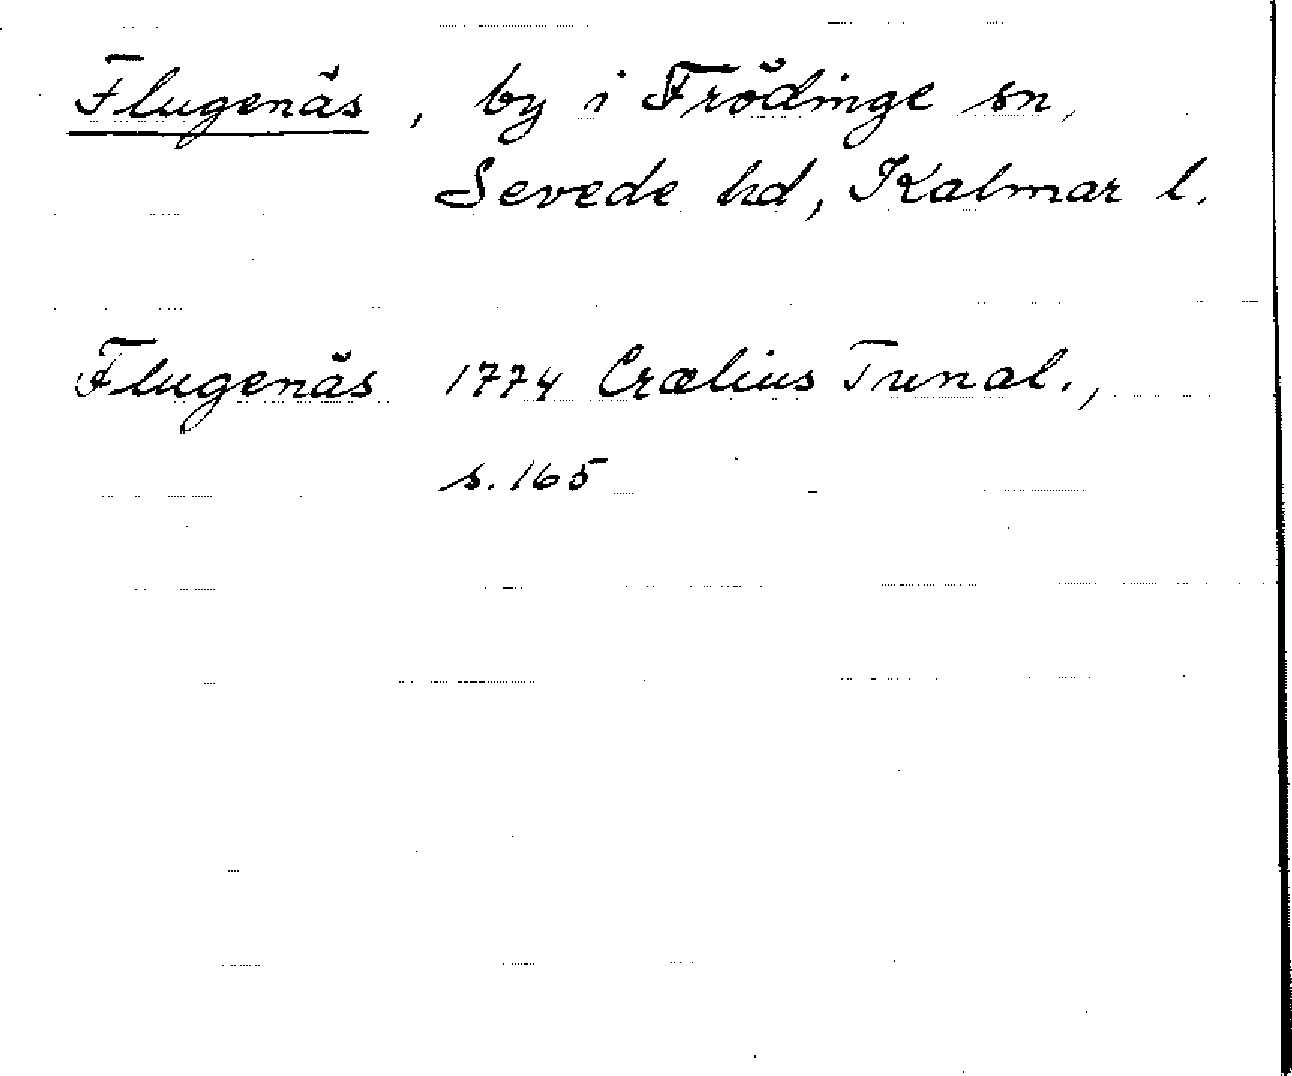 Flugenäs, by i Frödinge sn,
Sevede hd, Kalmar l.
Flugenäs 1774 Crælius Tunal.,
s. 165